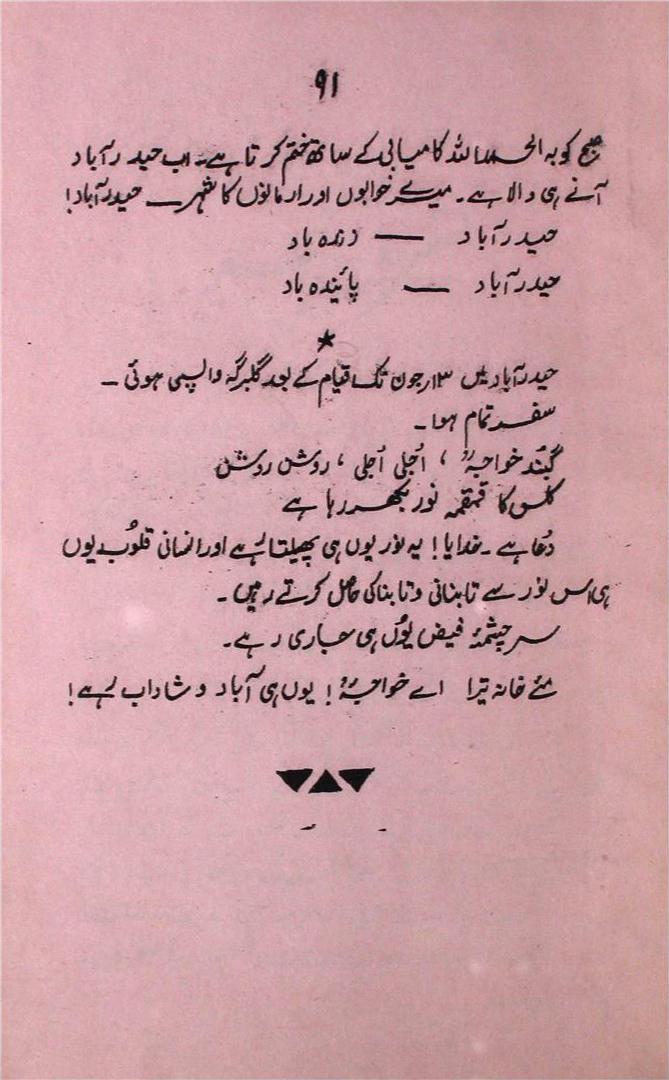 ۹۱
صبح کو بہ الحمد اللہ کامیابی کے ساتھ ختم کرتا ہے۔ اب حیدرآباد
آنے ہی والا ہے۔ میرے خوابوں اور ارمانوں کا شہر — حیدرآباد!
حیدرآباد — زندہ باد
حیدرآباد — پائیندہ باد
★
حیدرآباد میں ۱۳؍جون تک قیام کے بعد گلبرگہ واپسی ہوئی ۔
سفر تمام ہوا ۔
گنبُد خواجہؒ ، اُجلی اُجلی ، روشن روشن
کلس کا قمقمہ نور بکھیر رہا ہے
دُعا ہے ۔ خدایا! یہ نور یوں ہی پھیلتا رہے اور انسانی قلوب یوں
ہی اس نور سے تابانی و تابناکی حاصل کرتے رہیں ۔
سرچشمۂ فیض یوُں ہی جاری رہے۔
مئے خانہ تیرا اے خواجہؒ! یوں ہی آباد و شاداب رہے!